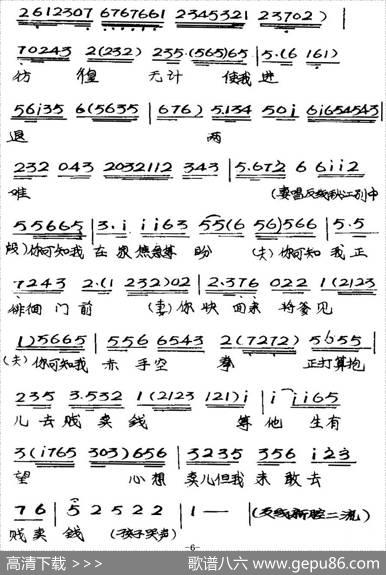 2612307 67676661 2345321 23702)
70243 2(232) 235·(565)65 5·(6 161)
彷 徨 无计 使我 进
56i35 6(5635 676) 5·134 50i 6i654543
退 两
232 043 2032112 343 5·672 6 6ii2
难 (妻唱反线秋江别中
55665 3·i ii63 55(6 56)566 5·5
段)你可知我 在家焦急等 盼 (夫)你可知 我正
7243 2·(1 232)02 2·376 022 1(2123
徘徊 门 前 (妻)你 快 回来 将爹见
1)5665 556 6543 2(7272) 5655
(夫)你可知我 赤 手空 拳 正打算抱
235 3·532 1(2123 121)i i ii65
儿去贱 卖 钱 等 他 生有
3(i765 303)656 3235 356 i23
望 心想 卖儿但我 未 敢去
76 5 2522 1 — (反线新腔二流)
贱卖 钱 (孩子哭声)
-6-
高清下载 >>> 歌谱八六 www.gepu86.com